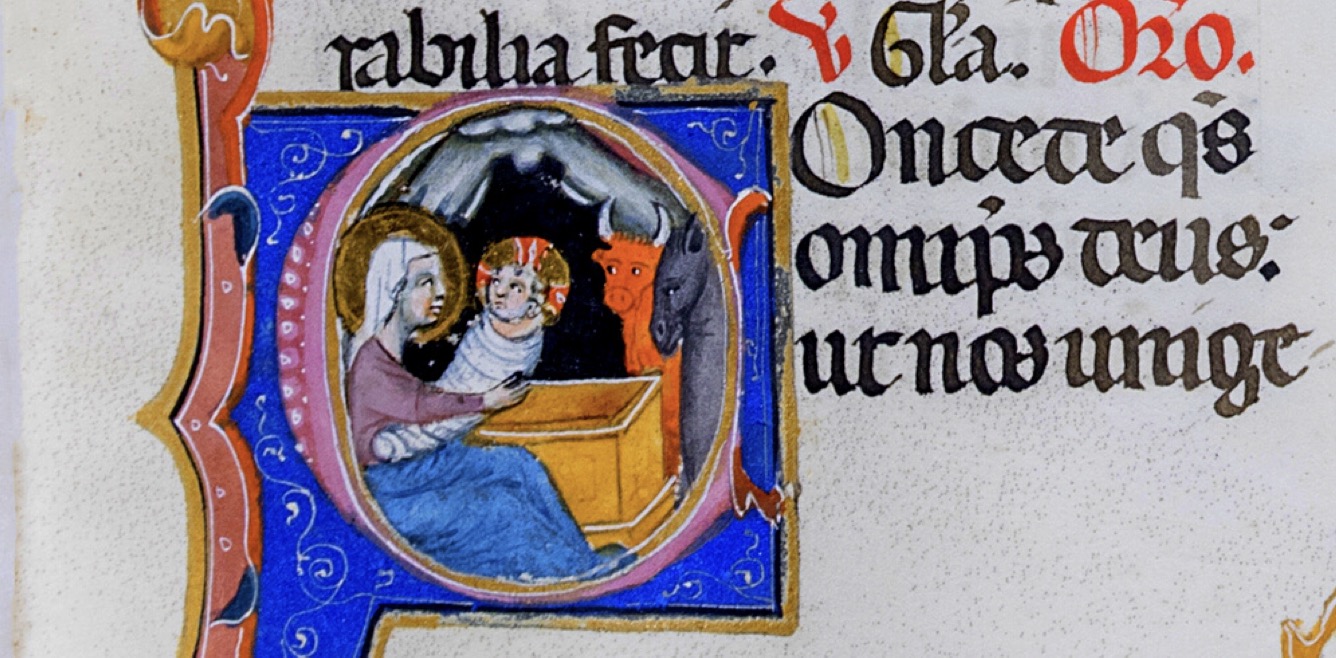 rabilia fecit. V Gl'a. Oro.
Concete q̄s
omnip̄s deus:
ut nos unige